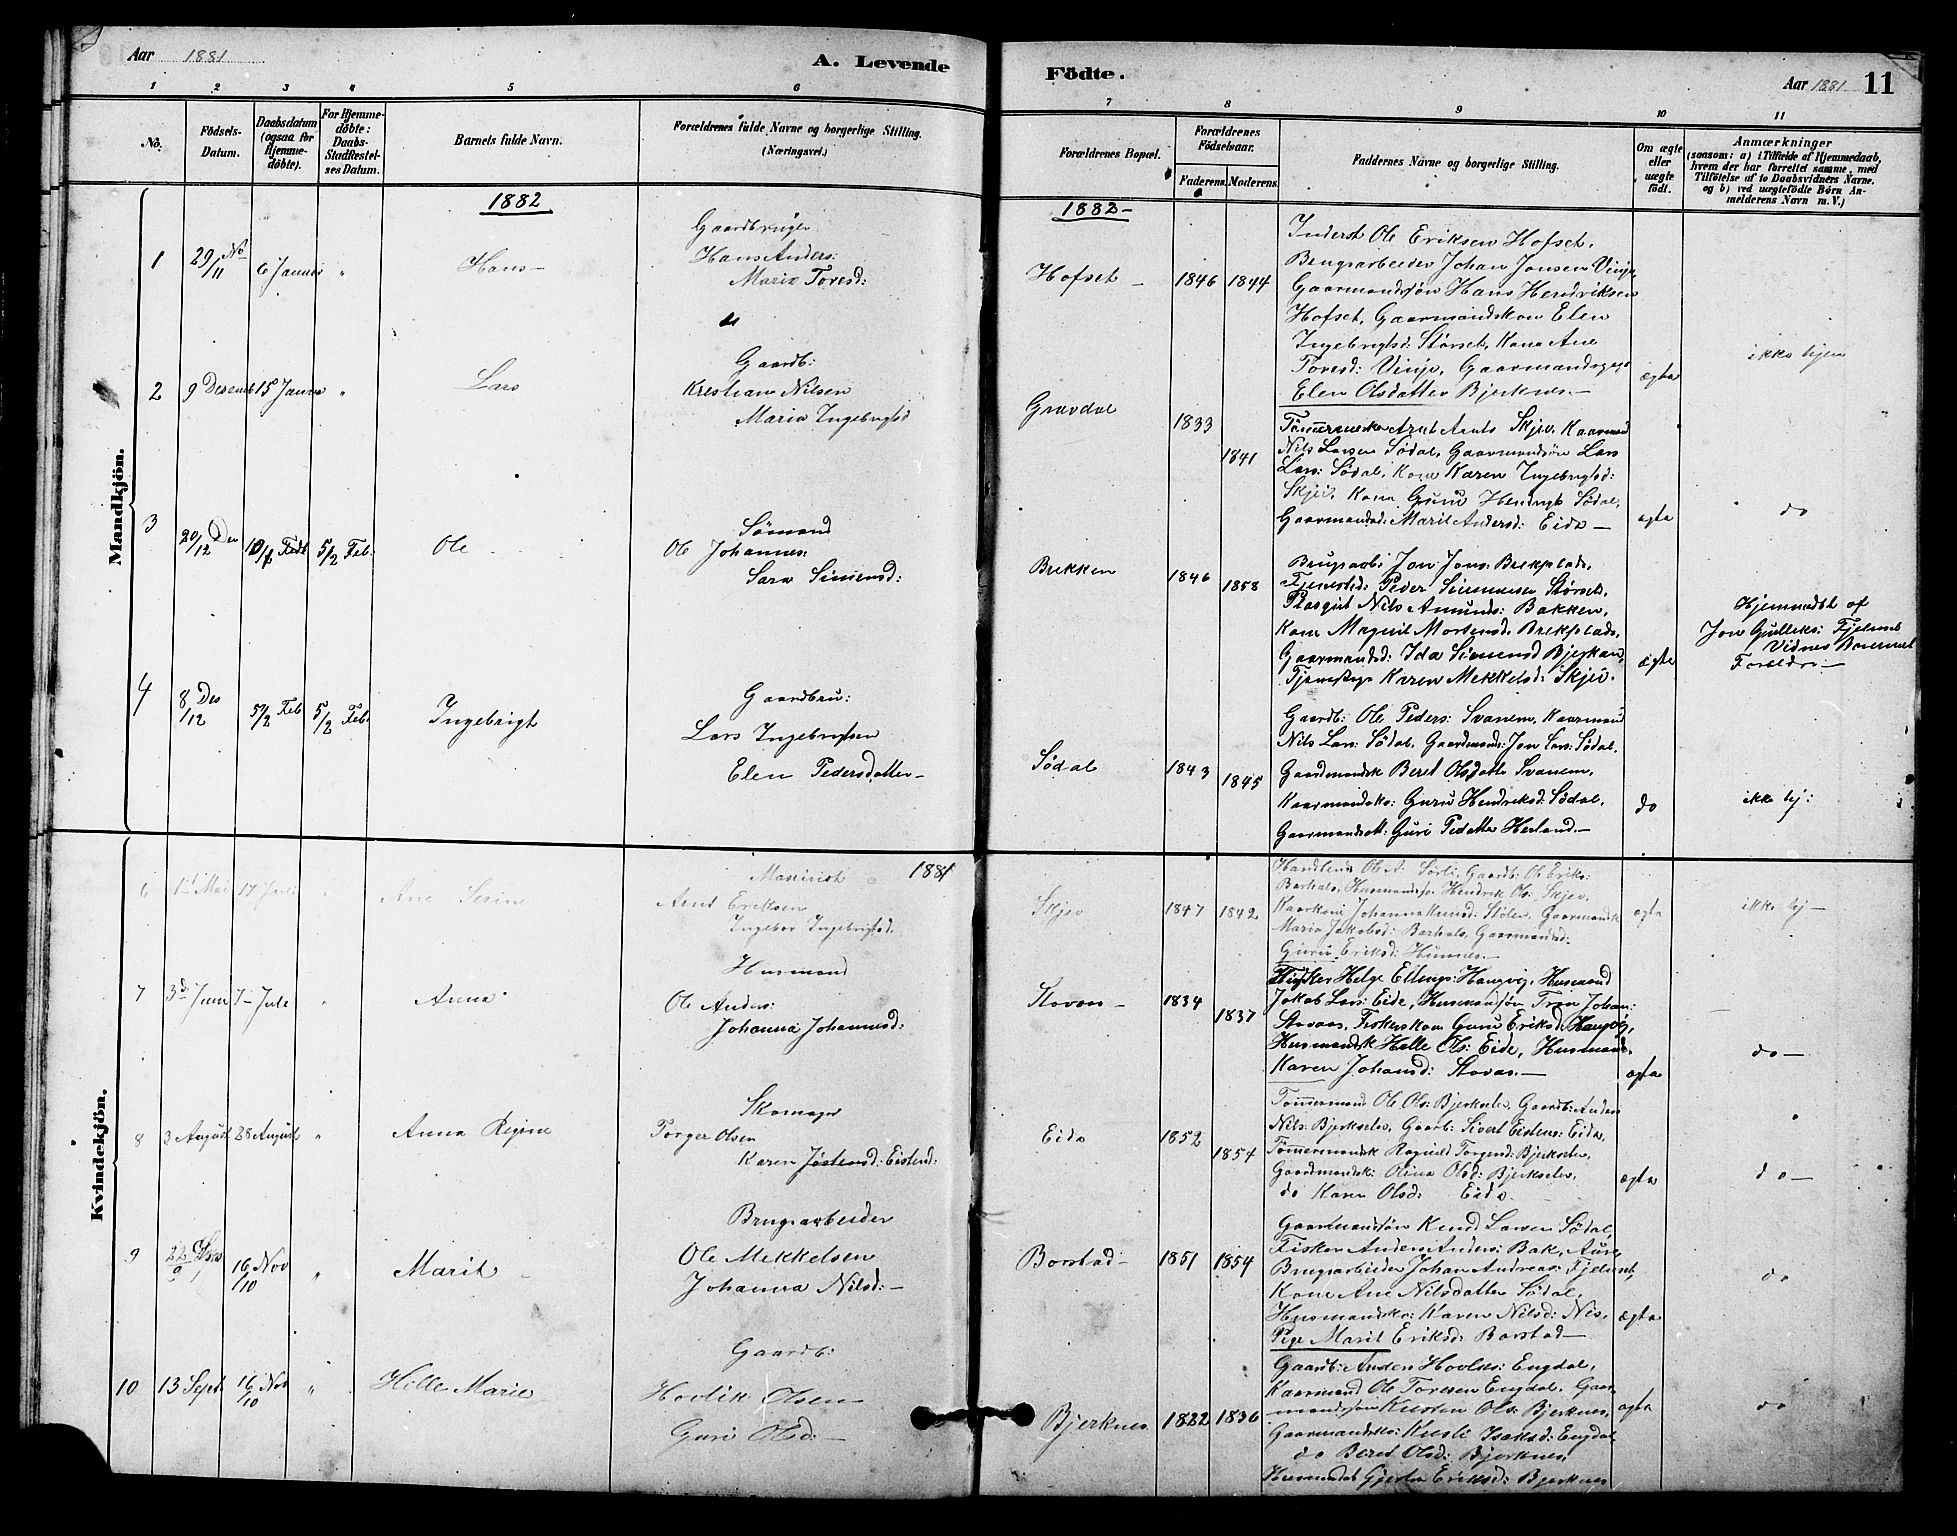 Aar 1881
A. Levende
Födte.
Aar 1881
11
1 2 3 4 5 6 7 8 9 10 11
No.
Födsels-
Datum.
Daabsdatum
(ogsaa for
Hjemme-
döbte).
For Hjemme-
döbte:
Daabs-
Stadfæstel-
ses Datum.
Barnets fulde Navn.
Forældrenes fulde Navne og borgerlige Stilling.
(Næringsvei.)
Forældrenes Bopæl.
Forældrenes
Födselsaar.
Faderens. Moderens.
Faddernes Navne og borgerlige Stilling.
Om ægte
eller
uægte
født.
Anmærkninger
(saasom: a) i Tilfælde af Hjemmedaab,
hvem der har forrettet samme, med
Tilföielse af to Daabsvidners Navne.
og b) ved uægtefödte Börn An-
melderens Navn m. V.)
Mandkjön.
1882
1882 -
1
29/11
6 Januar "
Hans -
Gaardbruger
Hans Anders:
Marie Toresd:
Hofset -
1846 1844
Inderst Ole Eriksen Hofset,
Brugsarbeider Johan Jonsen Vinje,
Gaarmandssøn Hans Hendriksen
Hofset, Gaarmandskon Elen
Ingebrigtsd: Størset, Kone Ane
Toresd: Vinje,
Elen Olsdatter Bjerknes. -
ægta
ikke hjem
2
9 Desemb 15 Janua "
Lars
Gaardb:
Kristian Nilsen
Maria Ingebrigtsd
Gravdal
1833
1841
Arnt Arnts Skjev, Kaarmand
Nils Larsen Södal, Gaarmandsøn Lars
Lars: Södal, Kone Karen Ingebrigtsd:
Skjei, Kone Guru Södal,
Gaarmandsd: Marit Andersd: Eide -
ægta
do
3
20/12 Des
5/2 Feb:
Ole
Sømand
Ole Johannes:
Sara Simensd:
Brekken
1846
1858
Brugsarb: Jon Jons: Brekplads,
Peder Simensen Størset,
Nils Amunds: Bakken,
Kone Magnil Mortensd: Brekplads,
Gaarmandsd: Ida Simensd Bjerkan,
Karen Mekkelsd: Skjei.
ægte
Hjemmedöbt af
Jon Gulleks: Fjelnset
Vidnes Barnets
Foreldre -
4
8/12 Des
5/2 Feb 5/2 Feb
Ingebrigt
Gaardbru:
Lars Ingebrigtsen
Elen Pedersdatter -
Södal
1843
1845
Gaardb: Ole Peders: Svanem, Kaarmand
Nils Lars: Södal, Gaardmands: Jon Lars: Södal,
Gaardmandsk Beret Olsdatte Svanem,
Kaarmandsko: Guru Hendriksd: Södal,
Guri Pedatte Herland. -
do
ikke hj:
Kvindekjön.
6
17 Juli "
Ane Serine
1881
Arnt Eriksen
Ingebor Ingebrigtsd:
Skjev
1847 1842
Ole A: Sørli, Gaardb: Ole Eriks:
Hendrik Ols: Skjev,
Johanna Knudsd: Stölen, Gaarmandsk
Maria Jakobsd:
Guru Eriksd: -
ægta
ikke hj -
7
3d Juni 7- Jule "
Anna
Husmand
Ole Anders:
Johanna Johannesd:
Stovas -
1834
1837
Fisker Helge Ellengs: Haugvig, Husmand
Jakob Lars: Eide, Husmandsøn Tron Johan:
Stovaas, Fiskerskone Guru Eriksd: Haugvig,
Husmandsk Helle Ols: Eide, Husmands-
Karen Johansd: Stovas. -
ægta
do -
8
3 August 28 August "
Anna Regine
Skomager
Torger Olsen
Karen Jøstensd: Eistensd:
Eide
1852
1854
Tømmermand Ole Ols: Bjerkselv, Gaardb: Anders
Nils: Bjerkselv, Gaarb: Sivert Eistens: Eide,
Tømmermandsk Ragnild Torgersd: Bjerkselv,
Gaardmandsk: Olina Olsd: Bjerkselv,
do Karen Olsd: Eide -
ægta
do -
9
16/10 Nov "
Marit -
Brugsarbeider
Ole Mekkelsen
Johanna Nilsd: -
Borstad -
1851 1854
Gaarmandssøn Knud Larsen Södal,
Fisker Anders Anders: Bak, Aure,
Brugsarbeider Johan Andreas: Fjelnset,
Kone Ane Nilsdatter Södal,
Husmandsko: Karen Nilsd: Nes,
Pige Marit Eriksd: Borstad -
ægta
do
10
13 Sept 16/10 Nov "
Hille Marie
Gaardb:
Hovlik Olsen
Guri Olsd: -
Bjerknes
1822 1836
Gaardb: Anders Hovlks: Engdal,
Kaarmand Ole Toresen Engdal, Gaar-
mandssøn Kristen Ols: Bjerknes,
Gaarmandsko: Isaksd: Engdal,
do Beret Olsd: Bjerknes,
Eriksd: Bjerknes
ægta
do